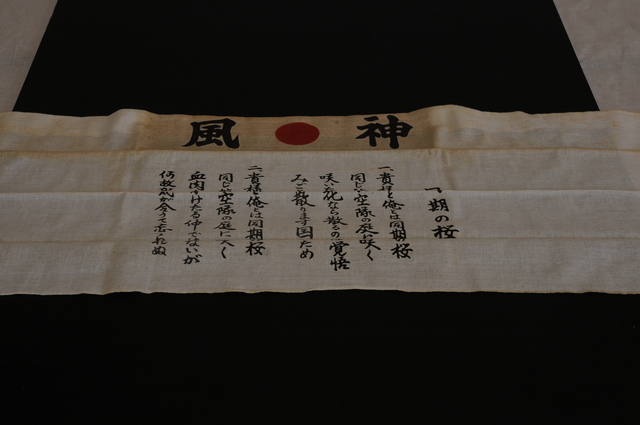 神風
期の桜
一貴様と俺とは同期桜
同じ空隊の庭に咲く
咲いた花なら散るの覚悟
みごと散ります国ため
二貴様と俺とは同期桜
同じ空隊の庭に咲く
血肉分けたる仲でないが
何故気が合うて忘られぬ